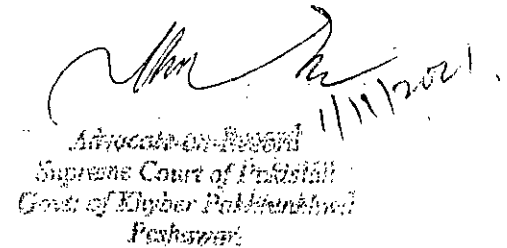 1/11/2021.
Advocate-on-Record
Supreme Court of Pakistan
Govt: of Khyber Pakhtunkhwa
Peshawar